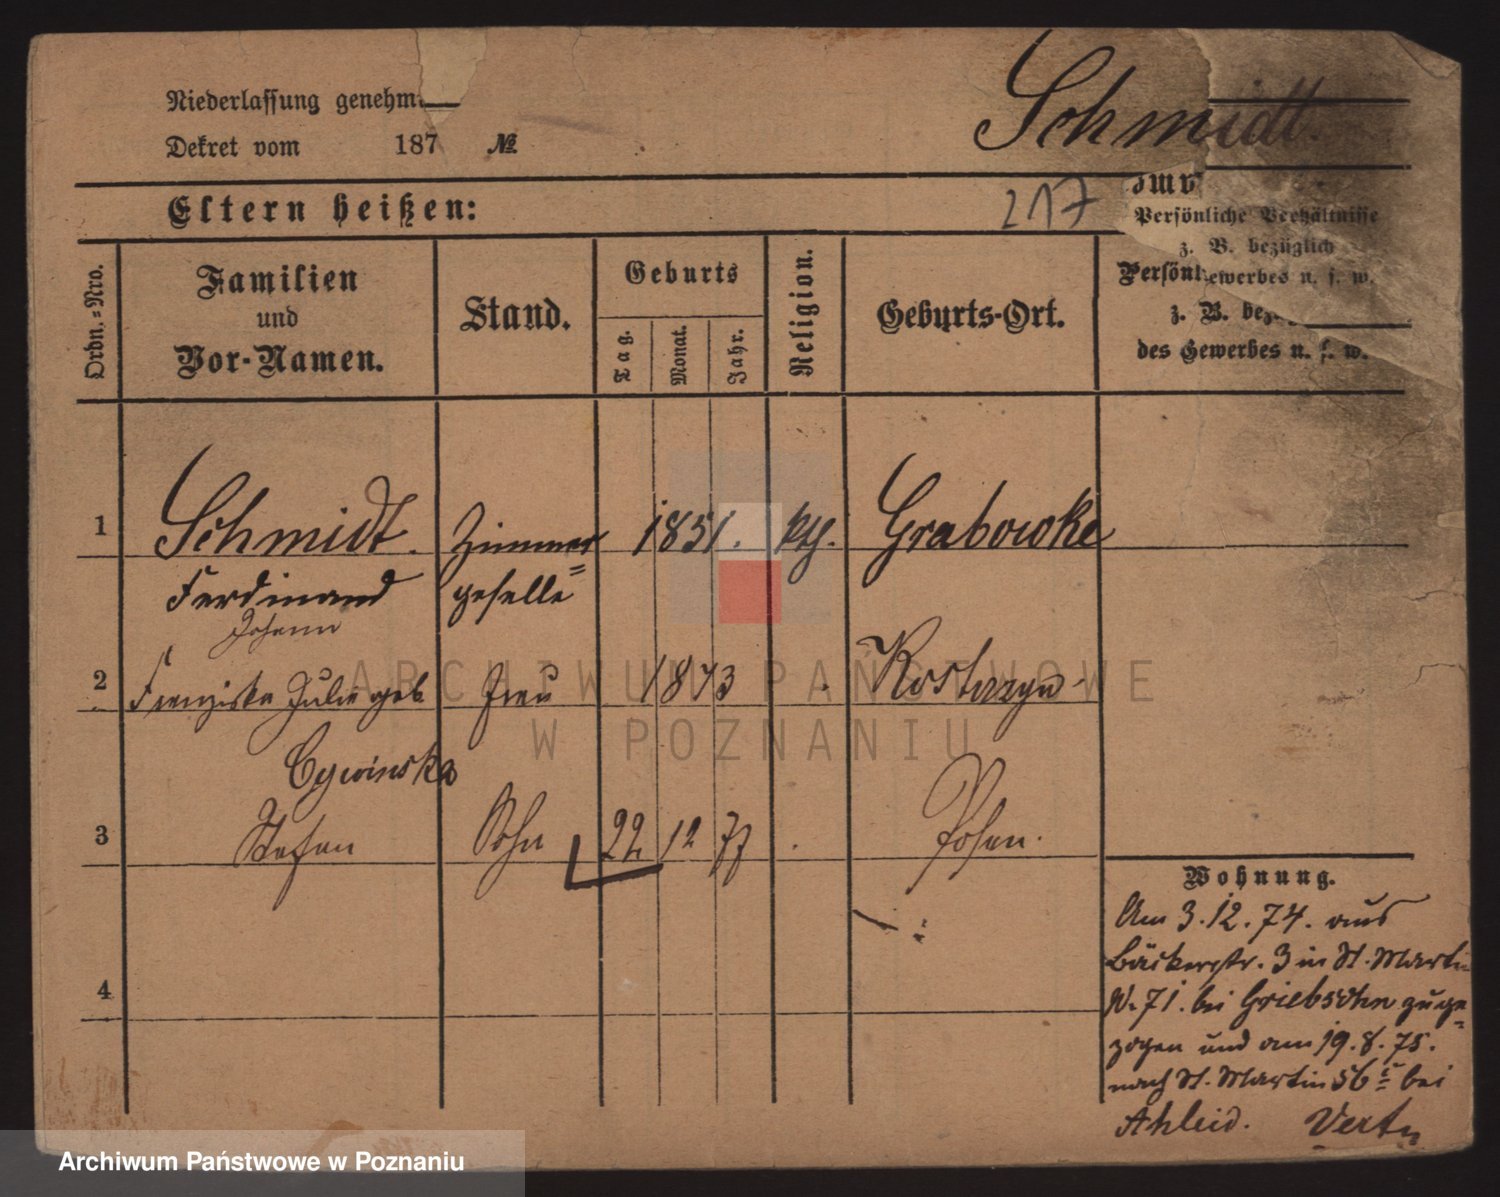 Niederlassung genehm
Dekret vom 187 №
Schmidt.
Eltern heißen:
217
Persönliche Verhältnisse
z. B. bezüglich
Gewerbes u. s. w.
z. B.
des Gewerbes u. s. w.
Ordn.-Nro.
Familien
und
Vor-Namen.
Stand.
Geburts
Tag.
Monat.
Jahr.
Religion.
Geburts-Ort.
1 Schmidt. Zimmer= 1851. kth. Grabowke
Ferdinand geselle
Johann
2 Franziska Julie geb Frau 1843 Kostrzyn
Cywinska
3 Stefan Sohn 22 12 77 Posen.
4
Wohnung.
Am 3.12.74. aus
Bäckerstr. 3 in St. Martin
N. 71. bei Griebsohn zuge=
zogen und am 19.8.75.
nach St. Martin 56 bei
Ahleid. Vert
ARCHIWUM PAŃSTWOWE
W POZNANIU
Archiwum Państwowe w Poznaniu